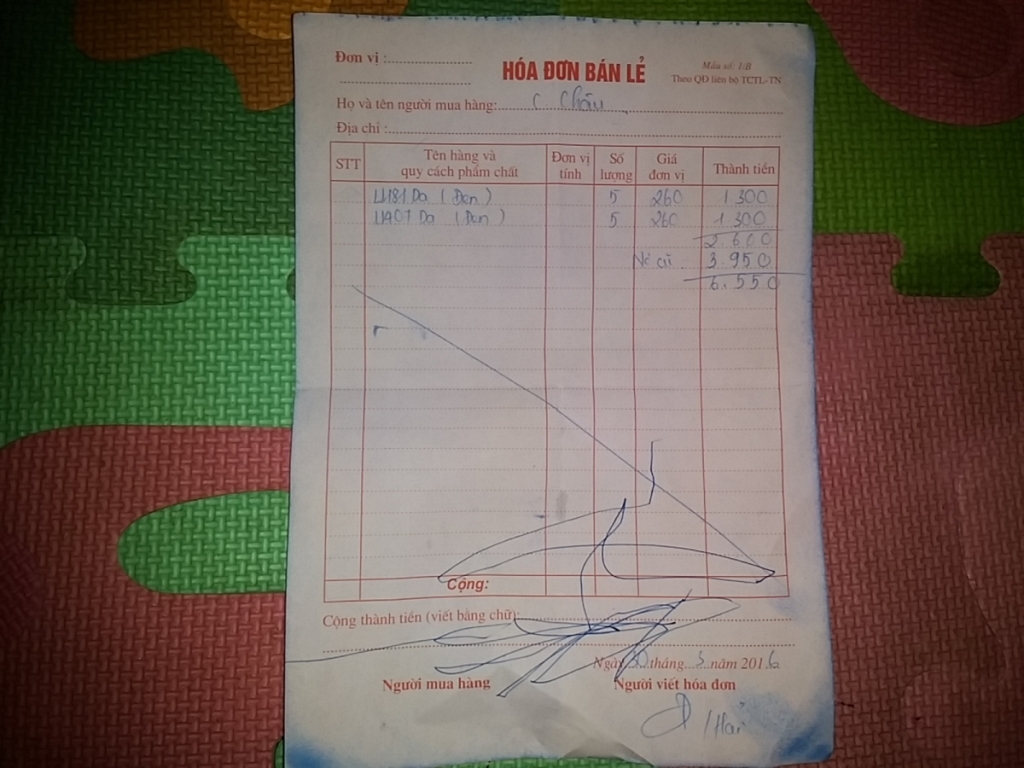 Đơn vị :
HÓA ĐƠN BÁN LẺ
Mẫu số: 1/B
Theo QĐ liên bộ TCTL-TN
Họ và tên người mua hàng: C Châu
Địa chỉ :
STT Tên hàng và quy cách phẩm chất Đơn vị tính Số lượng Giá đơn vị Thành tiền
Da (Đen) 5 260 1.300
Da (Đen) 5 260 1.300
2.600
Nợ cũ 3.950
6.550
Cộng:
Cộng thành tiền (viết bằng chữ):
Ngày 30 tháng 5 năm 2016
Người mua hàng Người viết hóa đơn